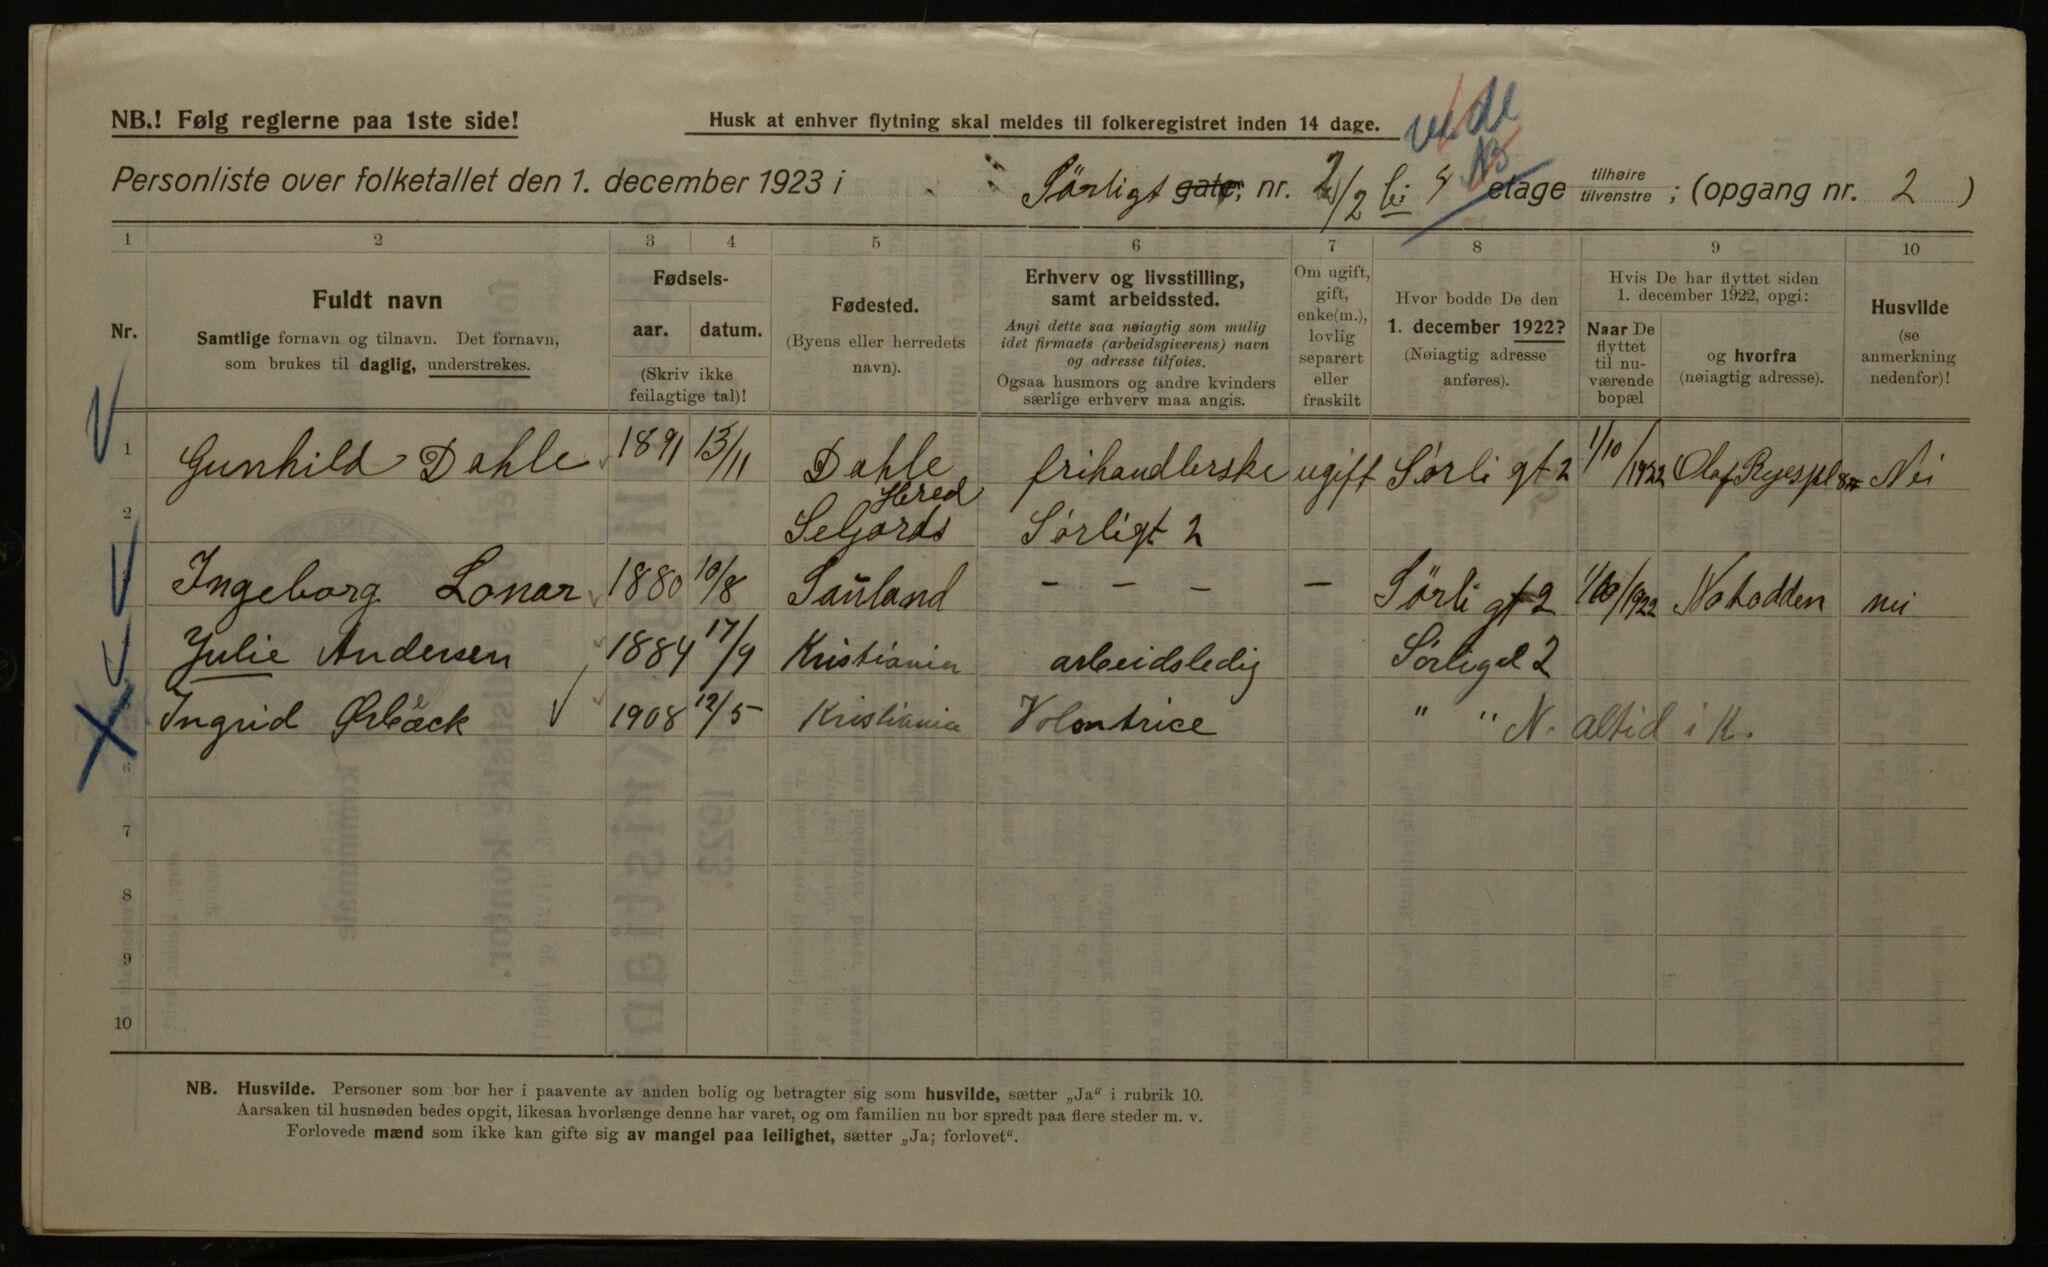 NB.! Følg reglerne paa 1ste side!
Husk at enhver flytning skal meldes til folkeregistret inden 14 dage.
Personliste over folketallet den 1. december 1923 i Sørligt gate, nr. 2 etage tilhøire tilvenstre ; (opgang nr. 2 )
1 2 3 4 5 6 7 8 9 10
Nr.
Fuldt navn
Samtlige fornavn og tilnavn. Det fornavn,
som brukes til daglig, understrekes.
Fødsels-
aar. datum.
(Skriv ikke
feilagtige tal)!
Fødested.
(Byens eller herredets
navn).
Erhverv og livsstilling,
samt arbeidssted.
Angi dette saa nøiagtig som mulig
idet firmaets (arbeidsgiverens) navn
og adresse tilføies.
Ogsaa husmors og andre kvinders
særlige erhverv maa angis.
Om ugift,
gift,
enke(m.),
lovlig
separert
eller
fraskilt
Hvor bodde De den
1. december 1922?
(Nøiagtig adresse
anføres).
Hvis De har flyttet siden
1. december 1922, opgi:
Naar De
flyttet
til nu-
værende
bopæl
og hvorfra
(nøiagtig adresse).
Husvilde
(se
anmerkning
nedenfor)!
1 Gunhild Dahle 1891 13/11 Dahle frihandlerske ugift Sørligt 2 1/10/1922 Olaf Ryespl Nei
2 Hered Seljords Sørligt 2
Ingeborg Lonar 1880 10/8 Sauland – – – – Sørligt 2 1/10/1922 Notodden nei
Julie Andersen 1884 17/9 Kristiania arbeidsledig Sørligt 2
Ingrid Ørbæck 1908 12/5 Kristiania Volontrice " " N. altid i K.
6
7
8
9
10
NB. Husvilde. Personer som bor her i paavente av anden bolig og betragter sig som husvilde, sætter „Ja“ i rubrik 10.
Aarsaken til husnøden bedes opgit, likesaa hvorlænge denne har varet, og om familien nu bor spredt paa flere steder m. v.
Forlovede mænd som ikke kan gifte sig av mangel paa leilighet, sætter „Ja; forlovet“.